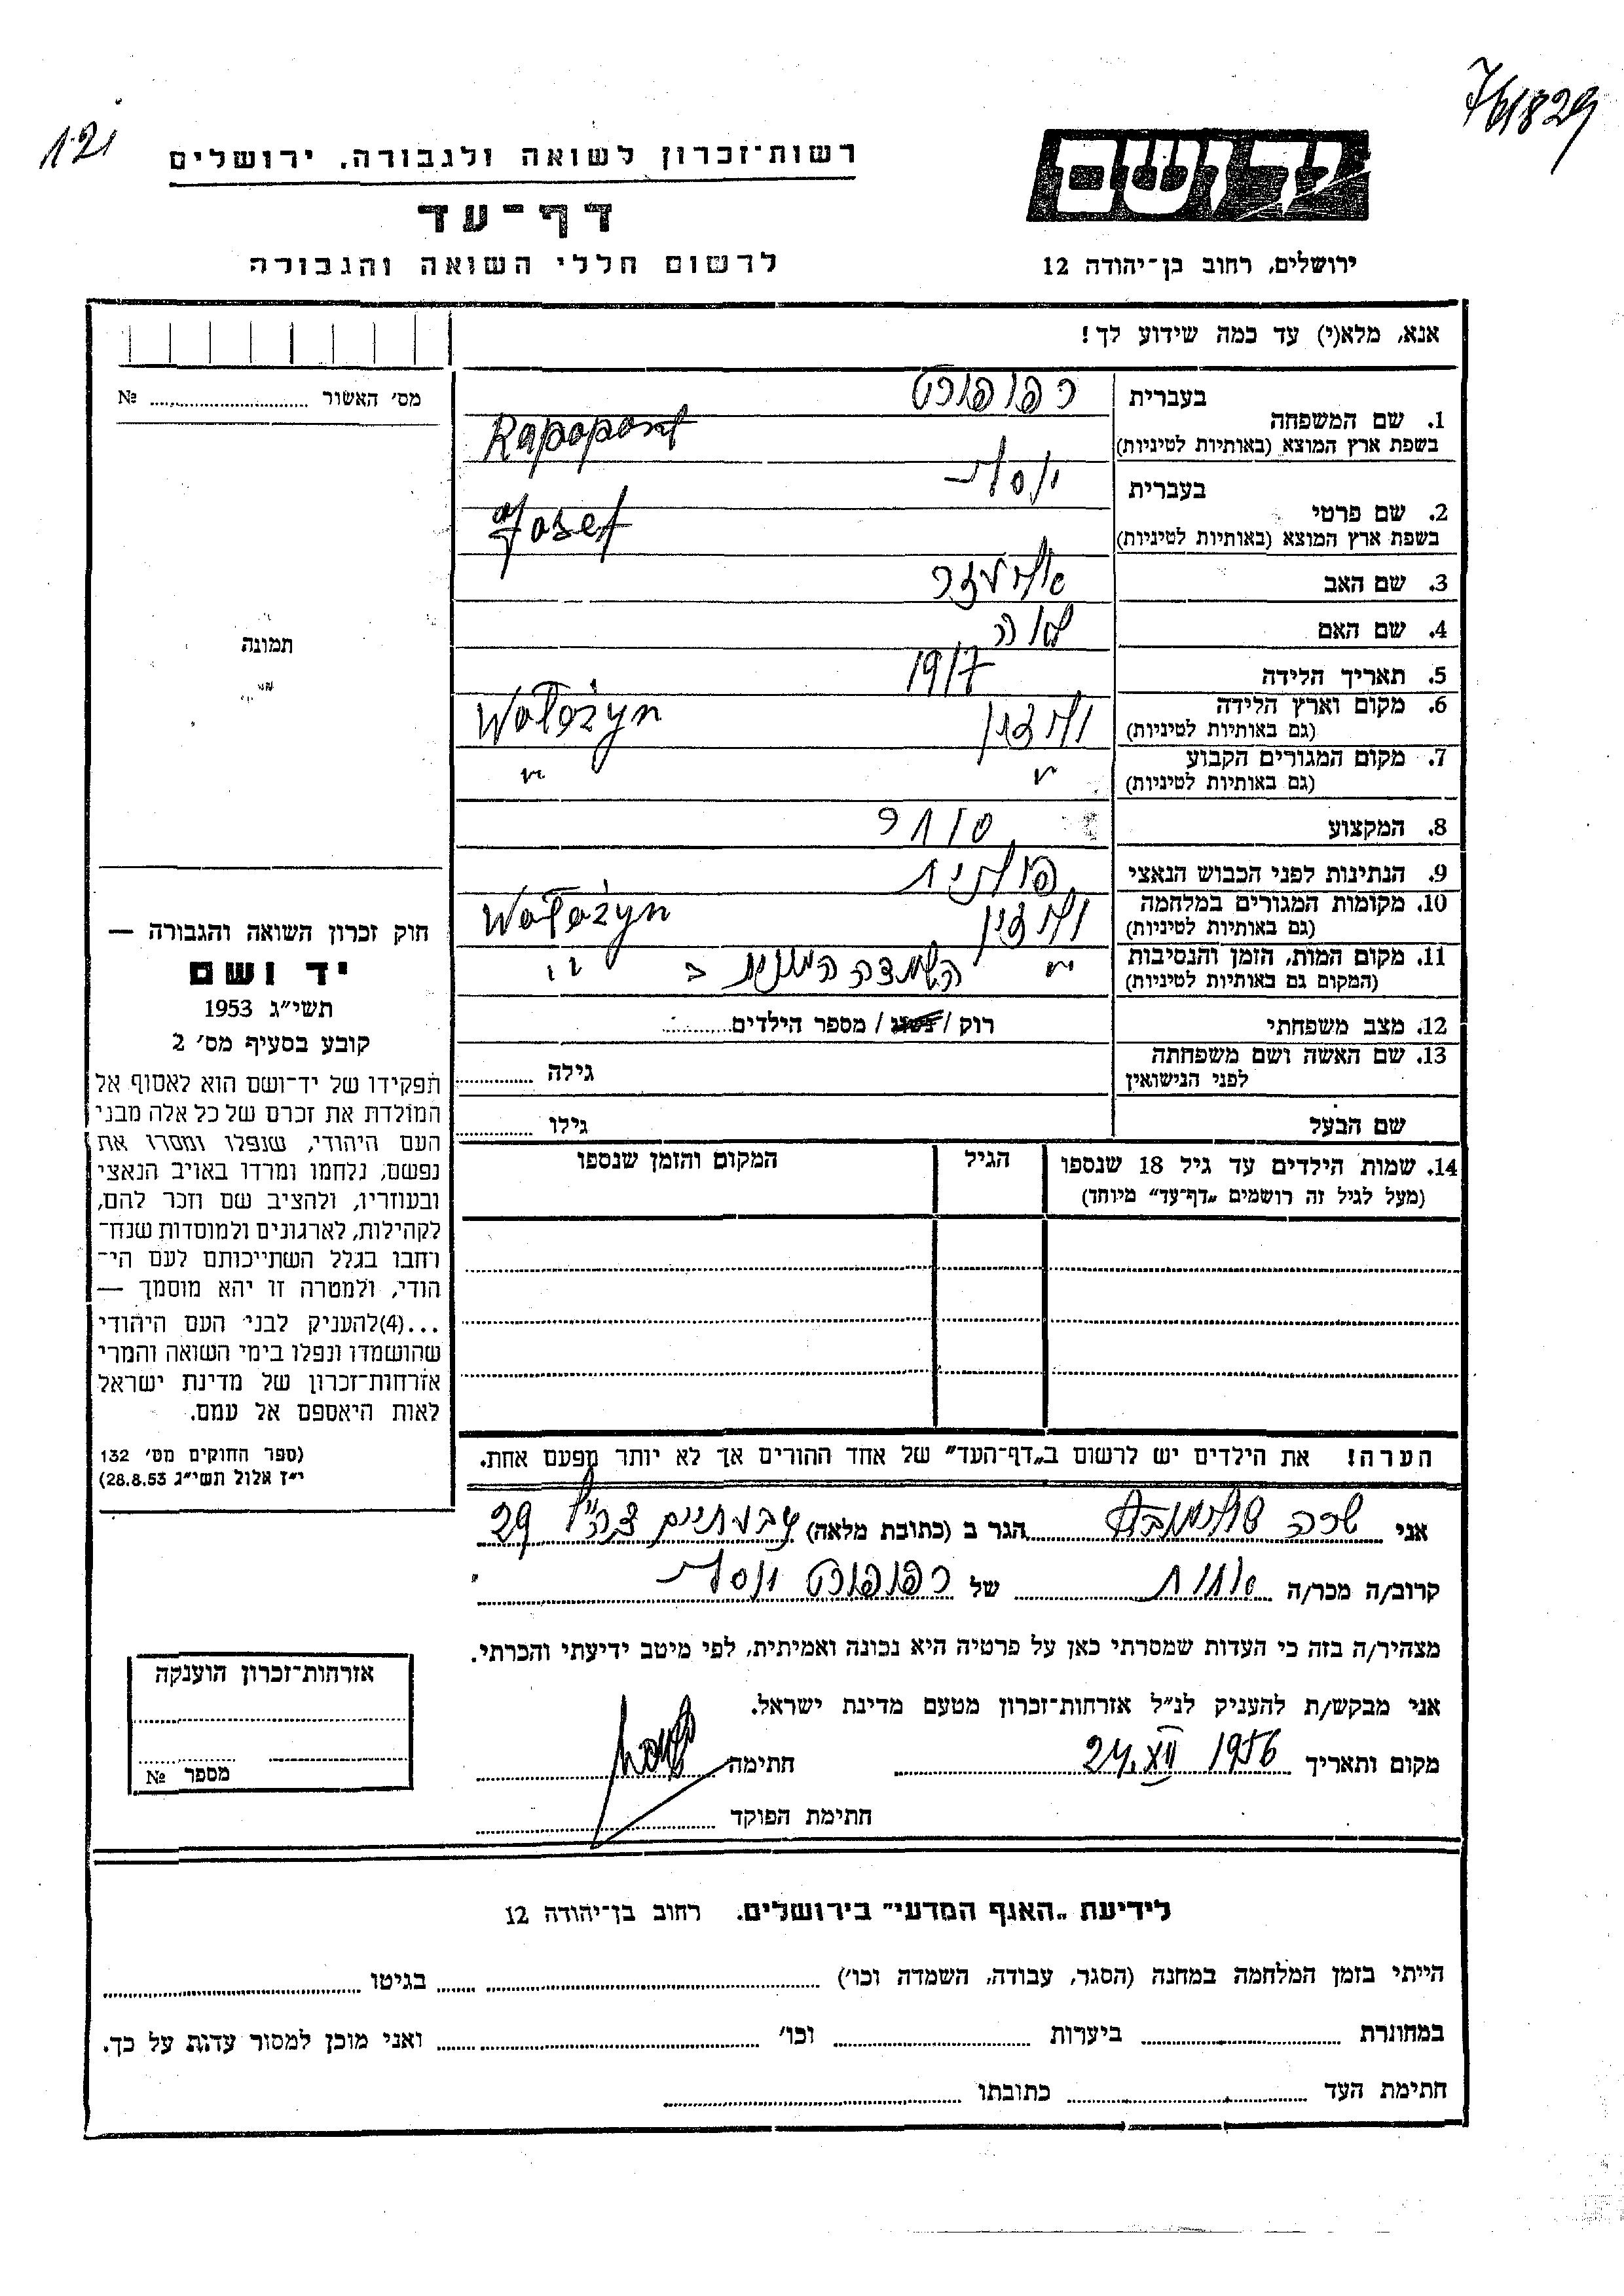 7/61829
121
ידושם
רשות־זכרון לשואה ולגבורה, ירושלים
דף־עד
ירושלים, רחוב בן־יהודה 12
לרשום חללי השואה והגבורה
אנא, מלא(י) עד כמה שידוע לך!
מס׳ האשור № ........
1. שם המשפחה בעברית רפופורט
בשפת ארץ המוצא (באותיות לטיניות) Rapoport
2. שם פרטי בעברית יוסף
בשפת ארץ המוצא (באותיות לטיניות) Josef
3. שם האב אליעזר
4. שם האם
5. תאריך הלידה 1917
6. מקום וארץ הלידה (גם באותיות לטיניות) ולוז'ין Wołożyn
7. מקום המגורים הקבוע (גם באותיות לטיניות) " "
8. המקצוע סוחר
9. הנתינות לפני הכבוש הנאצי פולנית
10. מקומות המגורים במלחמה (גם באותיות לטיניות) Wołożyn
11. מקום המות, הזמן והנסיבות (המקום גם באותיות לטיניות) " השמדה המונית ב " "
12. מצב משפחתי רוק / נשוי / מספר הילדים ........
13. שם האשה ושם משפחתה לפני הנישואין גילה ........
שם הבעל גילו ........
14. שמות הילדים עד גיל 18 שנספו
(מעל לגיל זה רושמים „דף־עד" מיוחד)
הגיל
המקום והזמן שנספו
הערה! את הילדים יש לרשום ב„דף־העד" של אחד ההורים אך לא יותר מפעם אחת.
תמונה
חוק זכרון השואה והגבורה —
יד ושם
תשי״ג 1953
קובע בסעיף מס׳ 2
תפקידו של יד־ושם הוא לאסוף אל
המולדת את זכרם של כל אלה מבני
העם היהודי, שנפלו ומסרו את
נפשם, נלחמו ומרדו באויב הנאצי
ובעוזריו, ולהציב שם וזכר להם,
לקהילות, לארגונים ולמוסדות שנח־
רחבו בגלל השתייכותם לעם הי־
הודי, ולמטרה זו יהא מוסמך —
...(4)להעניק לבני העם היהודי
שהושמדו ונפלו בימי השואה והמרי
אזרחות־זכרון של מדינת ישראל
לאות היאספם אל עמם.
(ספר החוקים מס׳ 132
י״ז אלול תשי״ג 28.8.53)
אני שרה הגר ב (כתובת מלאה) גבעתיים צה"ל 29
קרוב/ה מכר/ה אחות של רפופורט יוסף
מצהיר/ה בזה כי העדות שמסרתי כאן על פרטיה היא נכונה ואמיתית, לפי מיטב ידיעתי והכרתי.
אני מבקש/ת להעניק לנ״ל אזרחות־זכרון מטעם מדינת ישראל.
מקום ותאריך 24.XII 1956 חתימה
חתימת הפוקד ........
אזרחות־זכרון הוענקה
מספר №
לידיעת „האגף המדעי" בירושלים. רחוב בן־יהודה 12
הייתי בזמן המלחמה במחנה (הסגר, עבודה, השמדה וכו׳) ........ בגיטו ........
במחותרת ........ ביערות ........ וכו׳ ........ ואני מוכן למסור עדות על כך.
חתימת העד ........ כתובתו ........